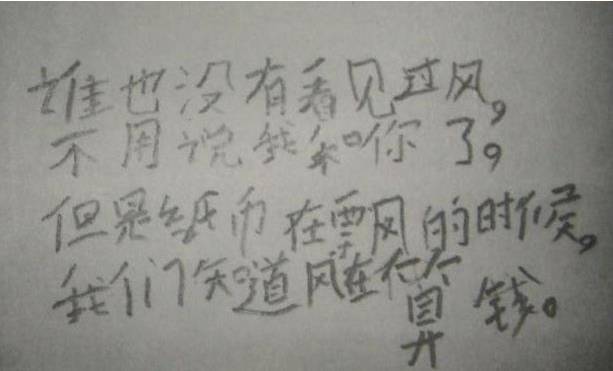 谁也没有看见过风，
不用说我和你了，
但是纸币在飘的时候，
我们知道风在算钱。